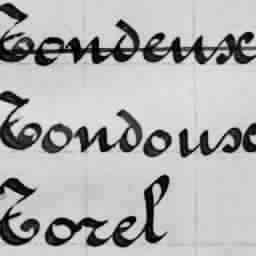 Tondeux
Tondoux
Torel